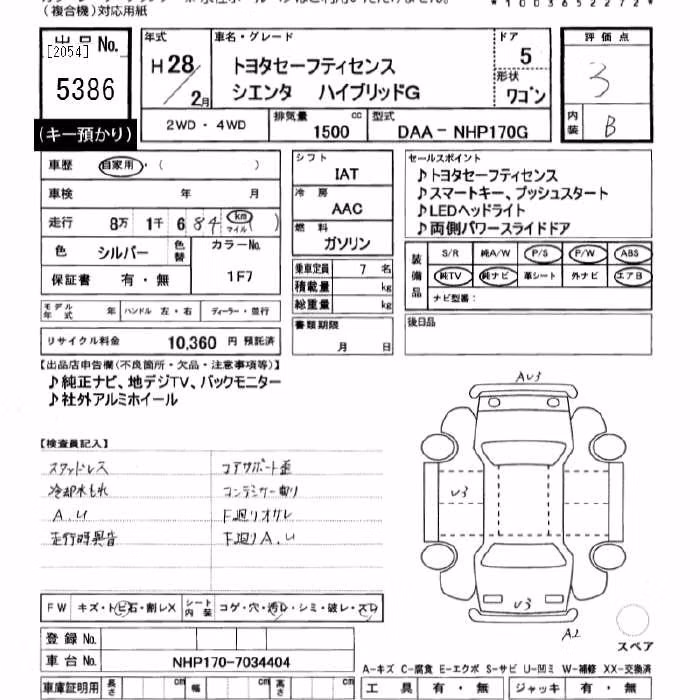 (複合機)対応用紙
*1003652272*
出品No.
[2054]
5386
(キー預かり)
年式
H28/2月
車名・グレード
トヨタセーフティセンス
シエンタ ハイブリッドG
ドア
5
形状
ワゴン
評価点
3
内装
B
2WD・4WD
排気量
1500 cc
型式
DAA-NHP170G
車歴 自家用・( )
車検 年 月
走行 8万 1千 684 km マイル ( )
色 シルバー 色替 カラーNo.
保証書 有・無 1F7
シフト
IAT
冷房
AAC
燃料
ガソリン
乗車定員 7 名
積載量 kg
総重量 kg
セールスポイント
♪トヨタセーフティセンス
♪スマートキー、プッシュスタート
♪LEDヘッドライト
♪両側パワースライドドア
装備品
S/R 純A/W P/S P/W ABS
純TV 純ナビ 革シート 外ナビ エアB
ナビ型番:
モデル年式 年 ハンドル 左・右 ディーラー・並行
リサイクル料金 10,360 円 預託済
書類期限
月 日
後日品
【出品店申告欄(不良箇所・欠品・注意事項等)】
♪純正ナビ、地デジTV、バックモニター
♪社外アルミホイール
【検査員記入】
スタッドレス
冷却水もれ
A.U
走行時異音
コアサポート歪
コンデンサー曲り
下廻りオカレ
下廻りA.U
AU3
U3
U3
A2
スペア
FW キズ・トビ石・割レX シート内装 コゲ・穴・汚レ・シミ・破レ・スレ
登録No.
車台No. NHP170-7034404
車庫証明用 長さ cm 幅 cm 高さ cm
A-キズ C-腐食 E-エクボ S-サビ U-凹ミ W-補修 XX-交換済
工具 有・無 ジャッキ 有・無